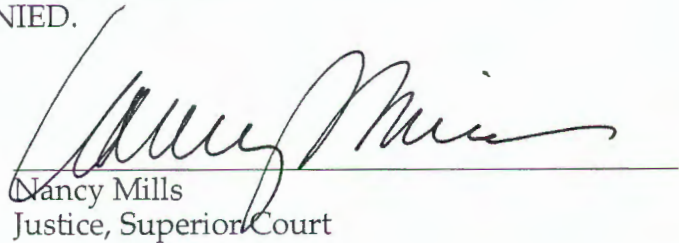 NIED.
Nancy Mills
Nancy Mills
Justice, Superior Court